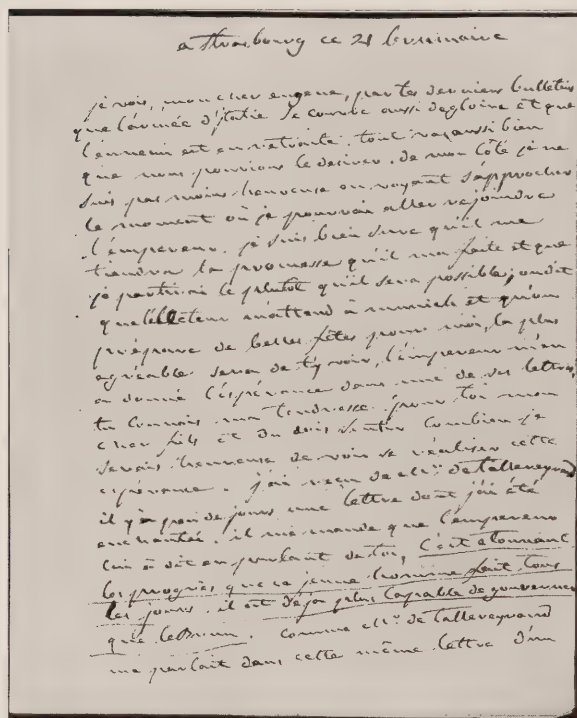 a Strasbourg ce 21 brumaire
je vois, mon cher eugene, par les derniers bulletins
que l'armée d'jtalie se couvre aussi de gloire et que
l'ennemi est en retraite. tout va aussi bien
que nous pouvions le desirer. de mon côté je ne
suis pas moins heureuse en voyant s'approcher
le moment où je pourrai aller rejoindre
l'empereur. je suis bien sure qu'il me
tiendra la promesse qu'il m'a faite et que
je partirai le plutôt qu'il sera possible, on dit
que l'électeur m'attend à munich et qu'on
prépare de belles fêtes pour moi, la plus
agréable sera de t'y voir, l'empereur m'en
a donné l'espérance dans une de ses lettres,
tu connois ma tendresse pour toi mon
cher fils et tu dois sentir combien je
serais heureuse de voir se réaliser cette
espérance. j'ai reçu de mr. de talleyrand
il y a peu de jours une lettre dont j'ai été
enchantée. il me mande que l'empereur
lui a dit en parlant de toi, c'est étonnant
les progrès que ce jeune homme fait tous
les jours. il est déja plus capable de gouverner
que lebrun. comme mr. de talleyrand
me parlait dans cette même lettre d'un